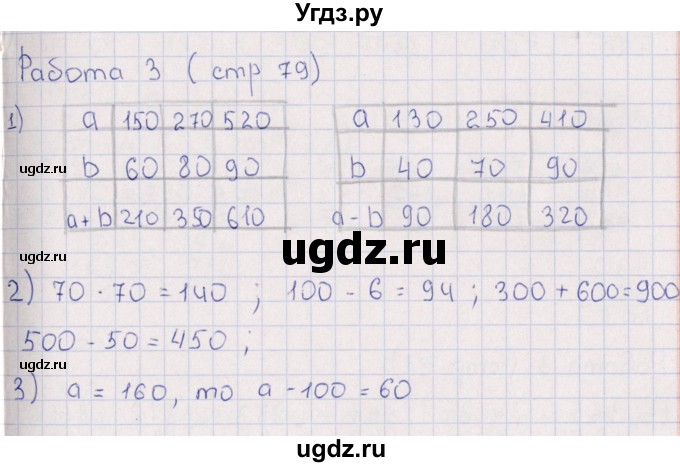 Угдз.ру
Работа 3 ( стр 79)
1) a 150 270 520 a 130 250 410
b 60 80 90 b 40 70 90
ugdz.ru ugdz.ru
a+b 210 350 610 a-b 90 180 320
ugdz.ru
2) 70 · 70 = 140 ; 100 - 6 = 94 ; 300 + 600 = 900
500 - 50 = 450 ;
ugdz.ru ugdz.ru
3) a = 160, то a - 100 = 60
ugdz.ru